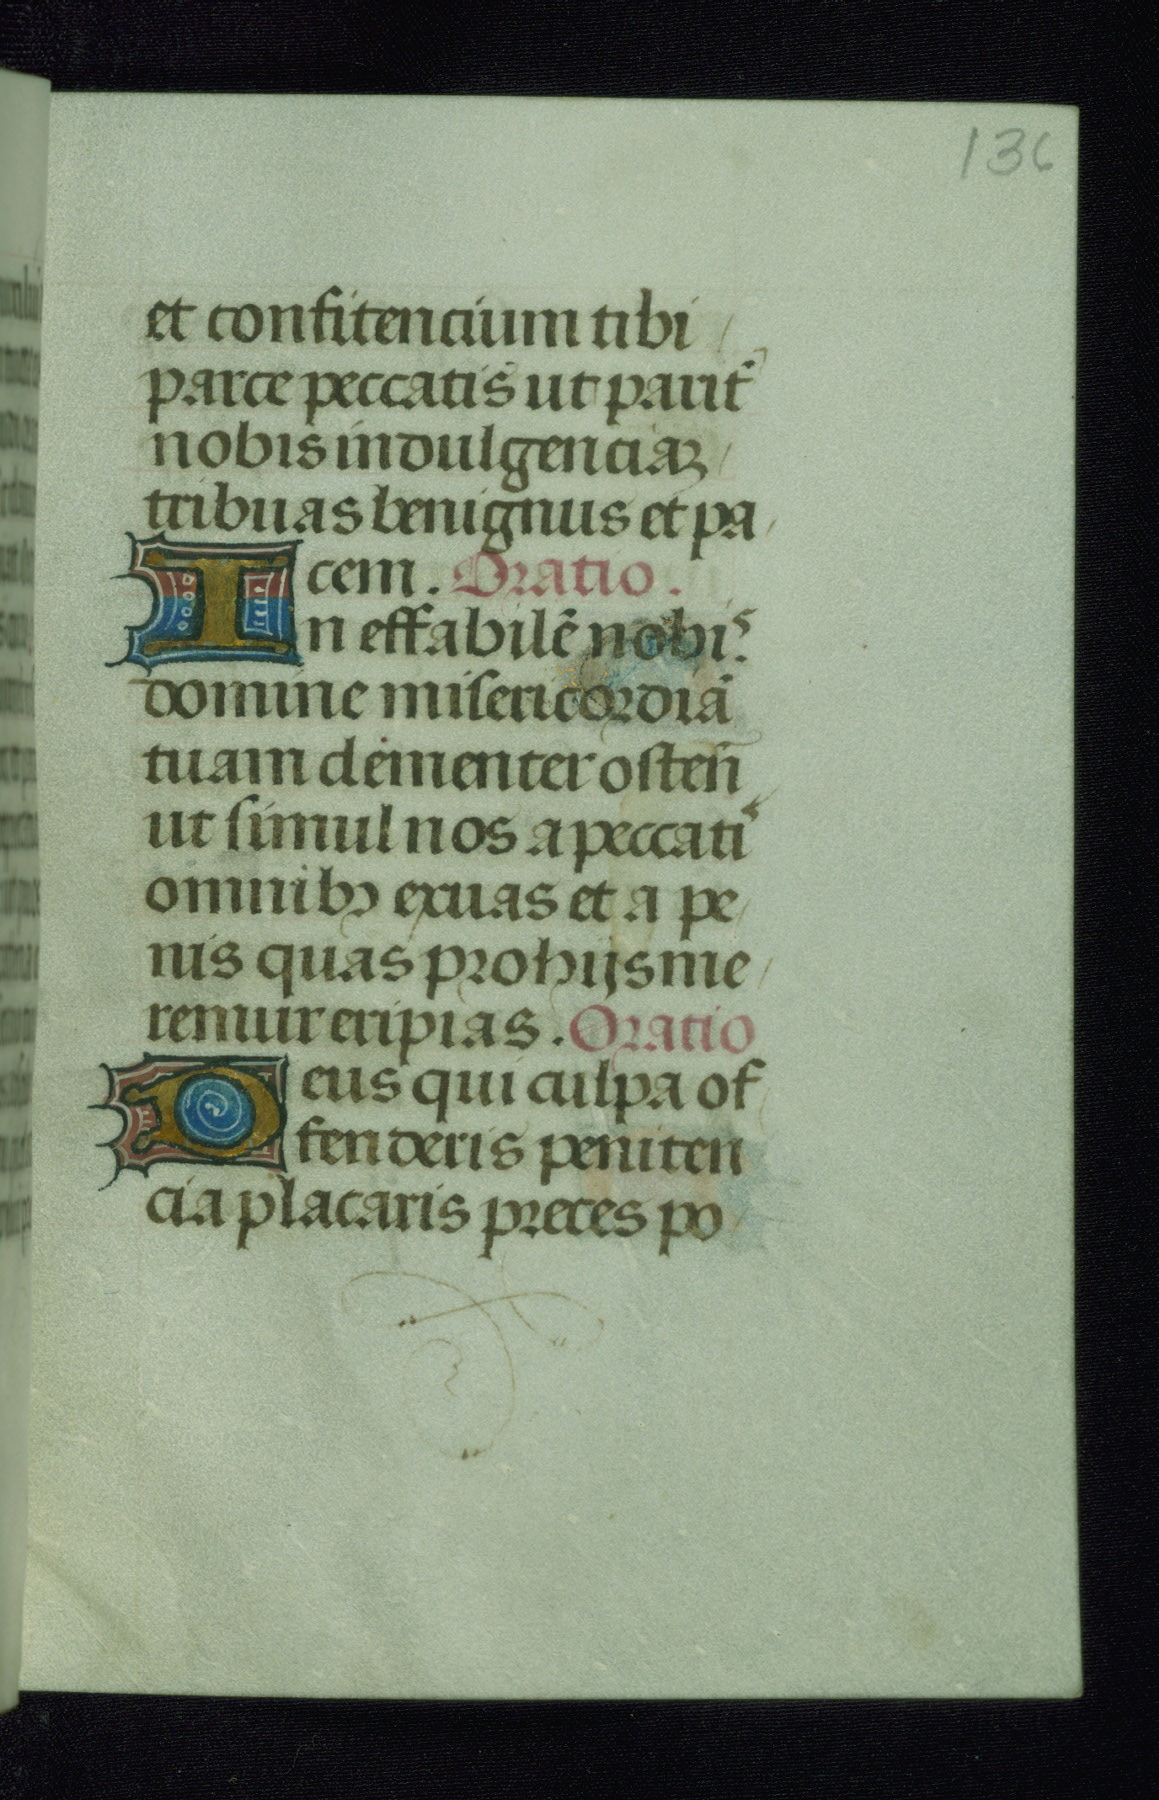 136
et confitencium tibi
parce peccatis ut parit᷑
nobis indulgenciaꝫ
tribuas benignus et pa
cem. Oratio.
In effabilē nobis.
domine misericordiā
tuam clementer osten̄
ut simul nos a peccatis
omnibꝫ exuas et a pe
nis quas pro hijs me
remur eripias. Oratio
Deus qui culpa of
fenderis peniten
cia placaris preces po